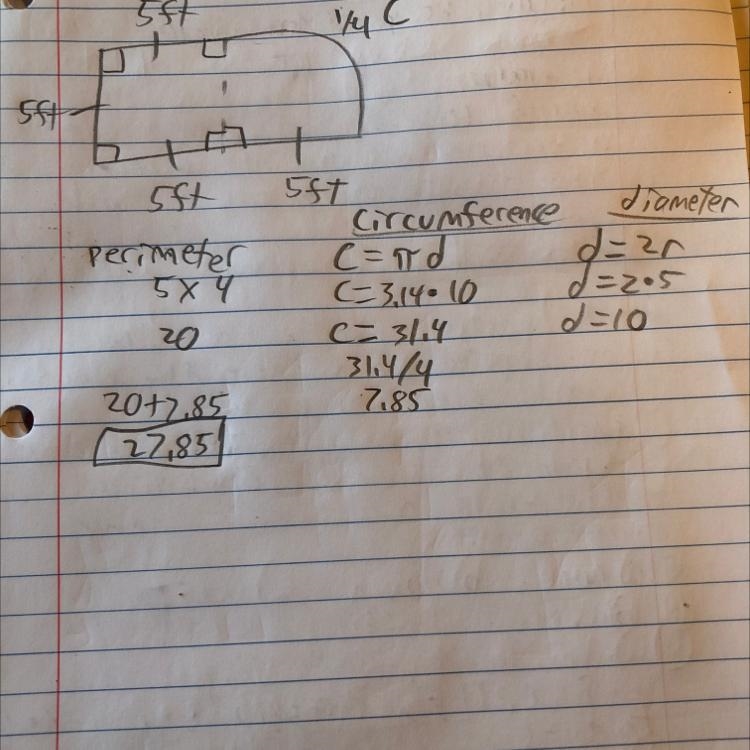 5ft
1/4 C
5ft
5ft
5ft
circumference
diameter
perimeter
C = πd
d = 2r
5 x 4
C = 3.14 • 10
d = 2 • 5
20
C = 31.4
d = 10
31.4/4
20 + 7.85
7.85
27.85